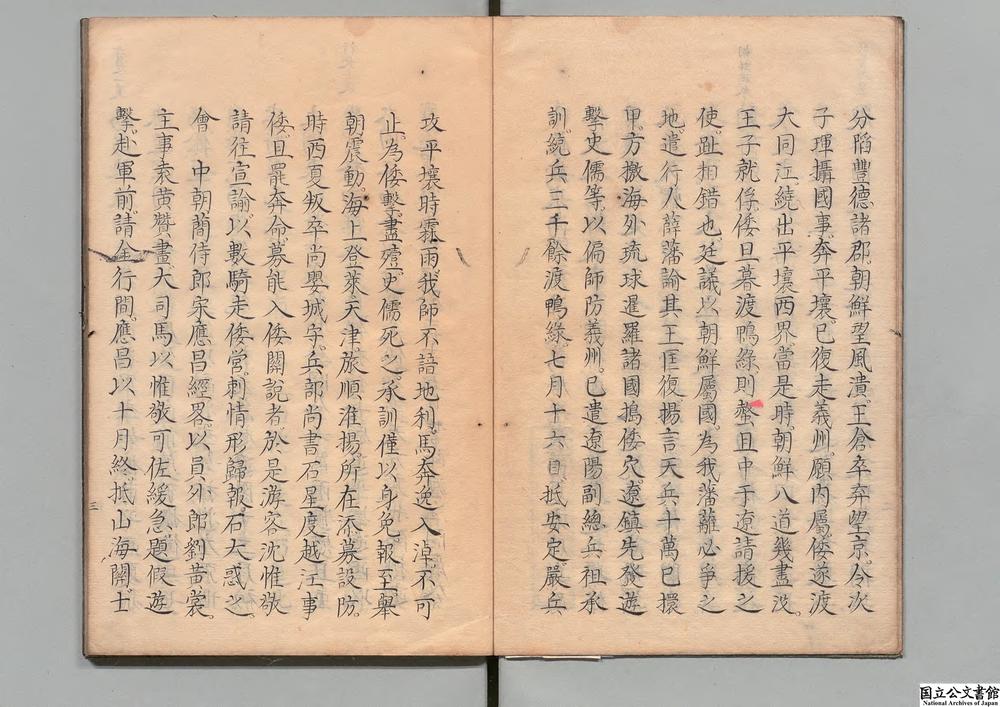 分陷豐德諸郡朝鮮望風潰王倉卒弃望京令次
子琿攝國事奔平壤已復走義州願内屬倭遂渡
大同江繞出平壤西界當是時朝鮮八道幾盡沒
王子就俘倭旦暮渡鴨緑則螫且中于遼請援之
使趾相錯也廷議以朝鮮屬國為我藩籬必爭之
地遣行人薛藩諭其王匡復揚言天兵十萬已擐
甲方檄海外琉球暹羅諸國搗倭穴遼鎮先發遊
擊史儒等以偏師防義州已遣遼陽副總兵祖承
訓統兵三千餘渡鴨緑七月十六日抵安定嚴兵
攻平壤時霪雨我師不諳地利馬奔逸入淖不可
止為倭擊盡殪史儒死之承訓僅以身免報至舉
朝震動海上登萊天津旅順淮揚所在添募設防
時西夏叛卒尚嬰城守兵部尚書石星度越江事
倭且罷奔命募能入倭關說者於是游客沈惟敬
請往宣諭以數騎走倭營刺情形歸報石大惑之
會 中朝蕑侍郎宋應昌經畧以員外郎劉黄裳
主事袁黄贊畫大司馬以惟敬可佐緩急題假遊
擊赴軍前請金行間應昌以十月終抵山海關士
三
国立公文書館
National Archives of Japan